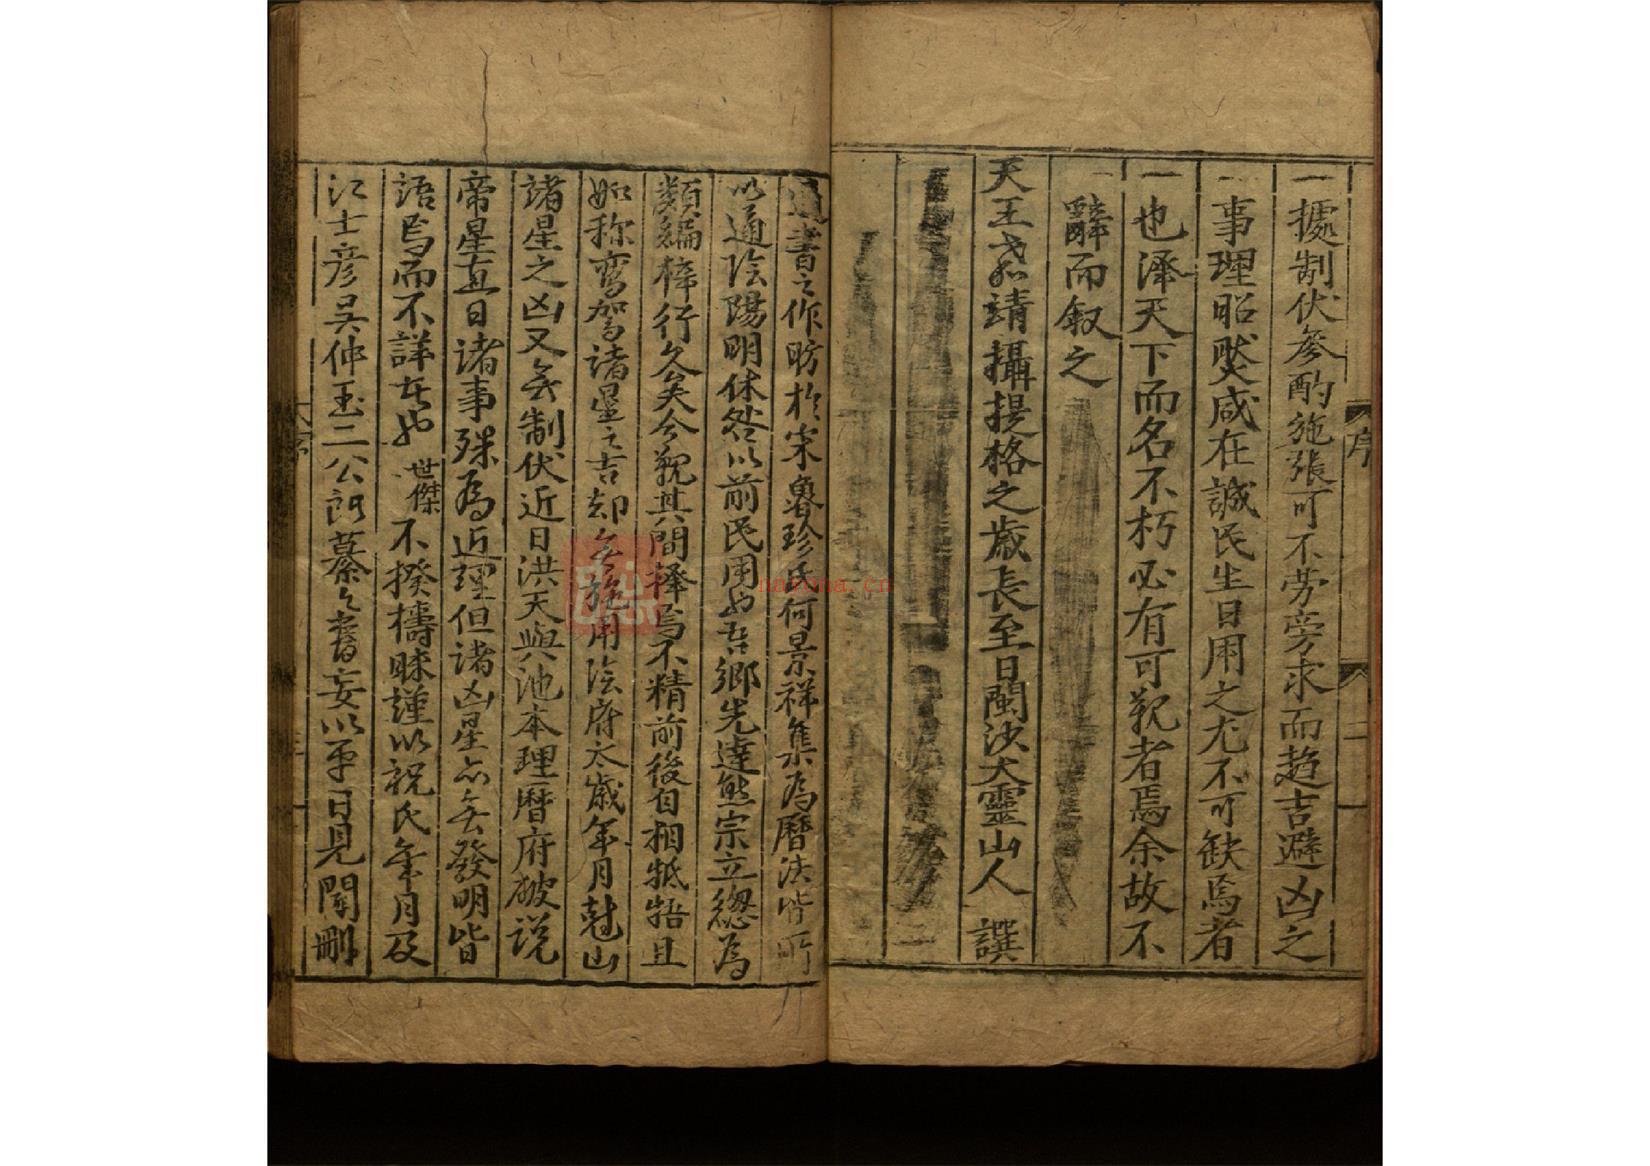 一據制伏參酌施張可不劳旁求而趋吉避凶之
事理昭然咸在誠民生日用之尤不可缺焉者
一也泽天下而名不朽必有可观者焉余故不
辭而叙之
天王戊戌靖攝提格之歲長至日閩沙大靈山人 譔
序
二
通書之作昉扵宋魯珍氏何景祥集為曆法皆所
以通陰陽明休咎以前民用也吾鄉先達熊宗立緫為
類編梓行久矣今观其間择焉不精前後自相牴牾且
如称鸾驾诸星之吉却无推用陰府太歲年月尅山
諸星之凶又无制伏近日洪天與池本理曆府破说
帝星直日诸事殊為近理但诸凶星亦无發明皆
語焉而不詳者也 世傑 不揆檮昧謹以祝氏年月及
江士彦吴仲玉二公所纂之書妄以平日見聞刪
nayona.cn